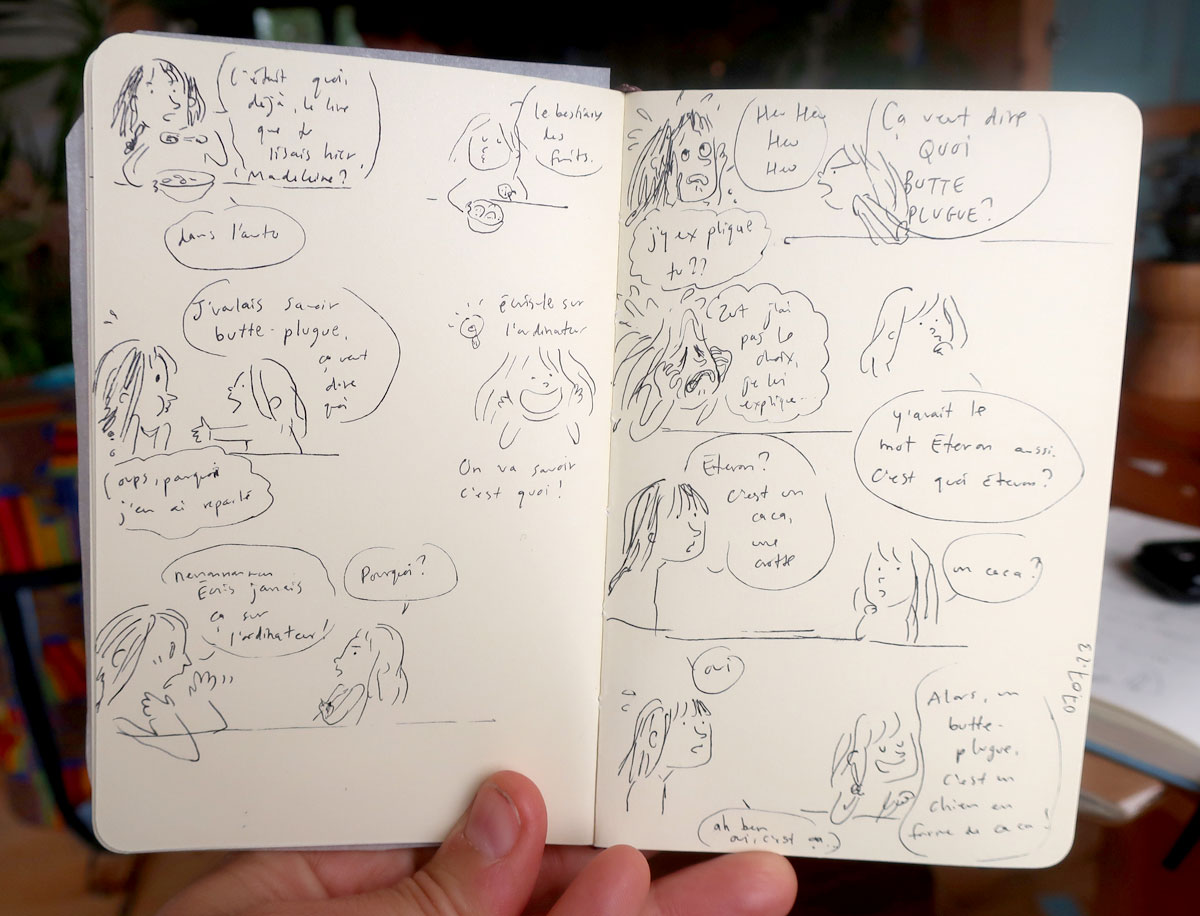 C'était quoi,
déjà, le livre
que tu
lisais hier,
Madeleine?
le bestiaire
des
fruits.
dans l'auto
J'voulais savoir
butte-plugue,
ça veut
dire
quoi
oups, pourquoi
j'en ai reparlé
écris-le sur
l'ordinateur
On va savoir
c'est quoi!
Écris jamais
ça sur
l'ordinateur!
Pourquoi?
Heu Heu
Heu
Heu
Ça veut dire
QUOI
BUTTE
PLUGUE?
j'y explique
tu??
Zut j'ai
pas le
choix,
je lui
explique
y'avait le
mot Étéron aussi.
C'est quoi étéron?
Étéron?
c'est un
caca,
une
crotte
un caca?
oui
Alors, un
butte-
plugue,
c'est un
chien en
forme de caca!
ah ben
oui, c'est ça